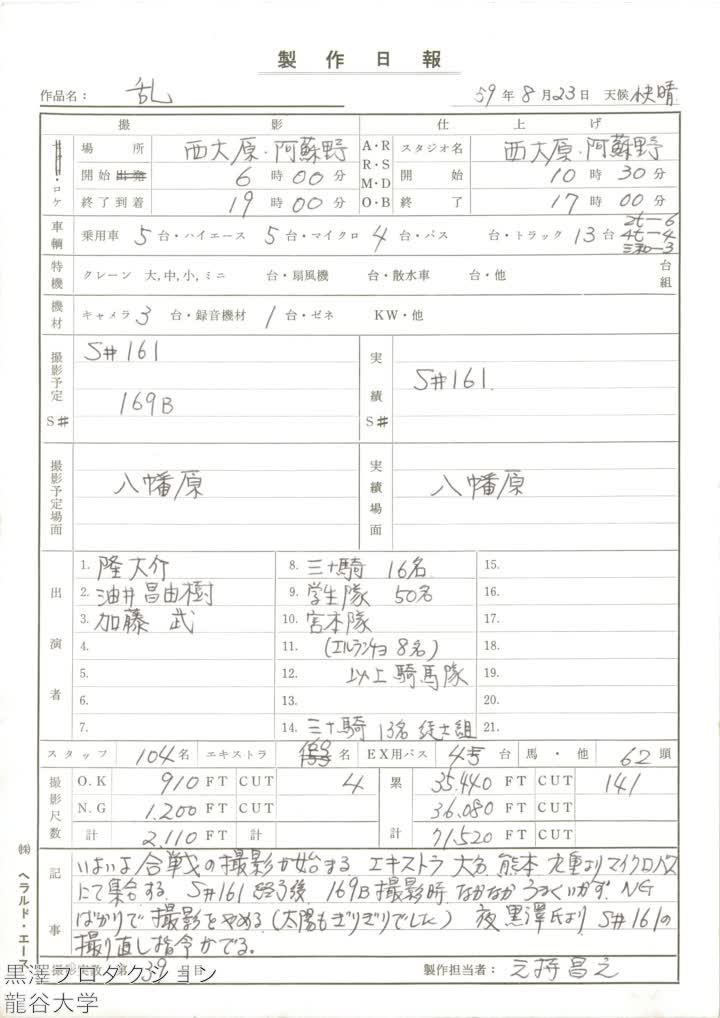 製作日報
作品名： 乱 59年 8月23日 天候 快晴
撮影 仕上げ
・ロケ
場所 西大原・阿蘇野 A・R スタジオ名 西大原・阿蘇野
開始 出発 6時00分 R・S 開始 10時30分
終了到着 19時00分 M・D O・B 終了 17時00分
車輌 乗用車 5台・ハイエース 5台・マイクロ 4台・バス 台・トラック 13台 2t-6 4t-4
特機 クレーン 大,中,小,ミニ 台・扇風機 台・散水車 台・他 台組
機材 キャメラ 3台・録音機材 1台・ゼネ KW・他
撮影予定 S# S#161 実績 S# S#161.
169B
撮影予定場面 八幡原 実績場面 八幡原
出演者
1. 隆大介 8. 三十騎 16名 15.
2. 油井昌由樹 9. 学生隊 50名 16.
3. 加藤 武 10. 宮本隊 17.
4. 11. (エルランチョ 8名) 18.
5. 12. 以上騎馬隊 19.
6. 13. 20.
7. 14. 三十騎 13名 徒士組 21.
スタッフ 104名 エキストラ 名 EX用バス 台 馬・他 62頭
撮影尺数 O.K 910 FT CUT 4 累計 35.440 FT CUT 141
N.G 1.200 FT CUT 36.080 FT CUT
計 2.110 FT 計 71.520 FT CUT
記事 いよいよ合戦の撮影が始まる エキストラ 大分 熊本 九重よりマイクロバス
にて集合する。S#161 終了後、169B撮影時、なかなかうまくいかず、NG
ばかりで撮影をやめる(太陽もぎりぎりでした) 夜、黒澤氏より、S#161の
撮り直し指令がでる。
撮影実数 第 39日目 製作担当者： 之持昌之
㈱ ヘラルド・エース
黒澤プロダクション
龍谷大学